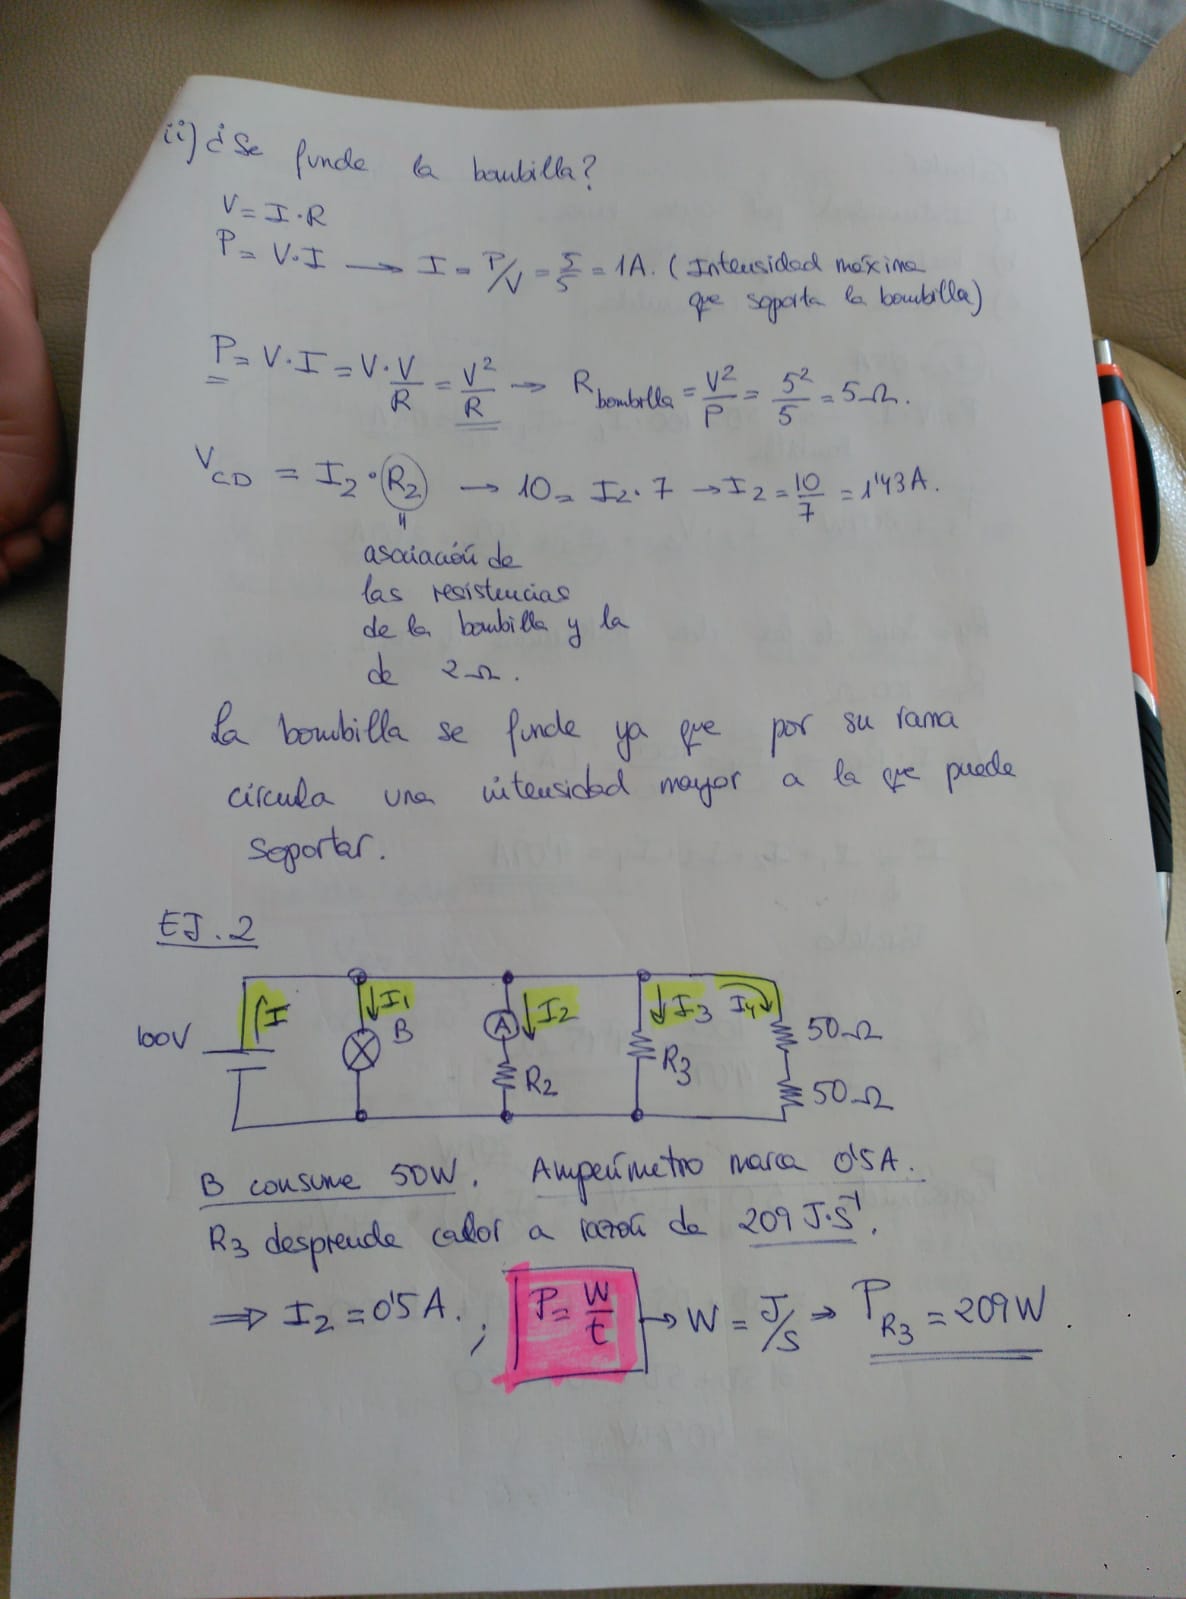 ii) ¿Se funde la bombilla?
V = I·R
P = V·I → I = P/V = 5/5 = 1A. (Intensidad máxima
que soporta la bombilla)
P = V·I = V·V/R = V²/R → R bombilla = V²/P = 5²/5 = 5Ω.
V_CD = I₂·R₂ → 10 = I₂·7 → I₂ = 10/7 = 1'43A.
"
asociación de
las resistencias
de la bombilla y la
de 2Ω.
La bombilla se funde ya que por su rama
circula una intensidad mayor a la que puede
soportar.
EJ. 2
100V
I
↓I₁
B
A
↓I₂
R₂
↓I₃
R₃
I₄
50Ω
50Ω
B consume 50W. Amperímetro marca 0'5A.
R₃ desprende calor a razón de 209 J·S⁻¹.
⇒ I₂ = 0'5A. ; P = W/t → W = J/s → P_R₃ = 209W.